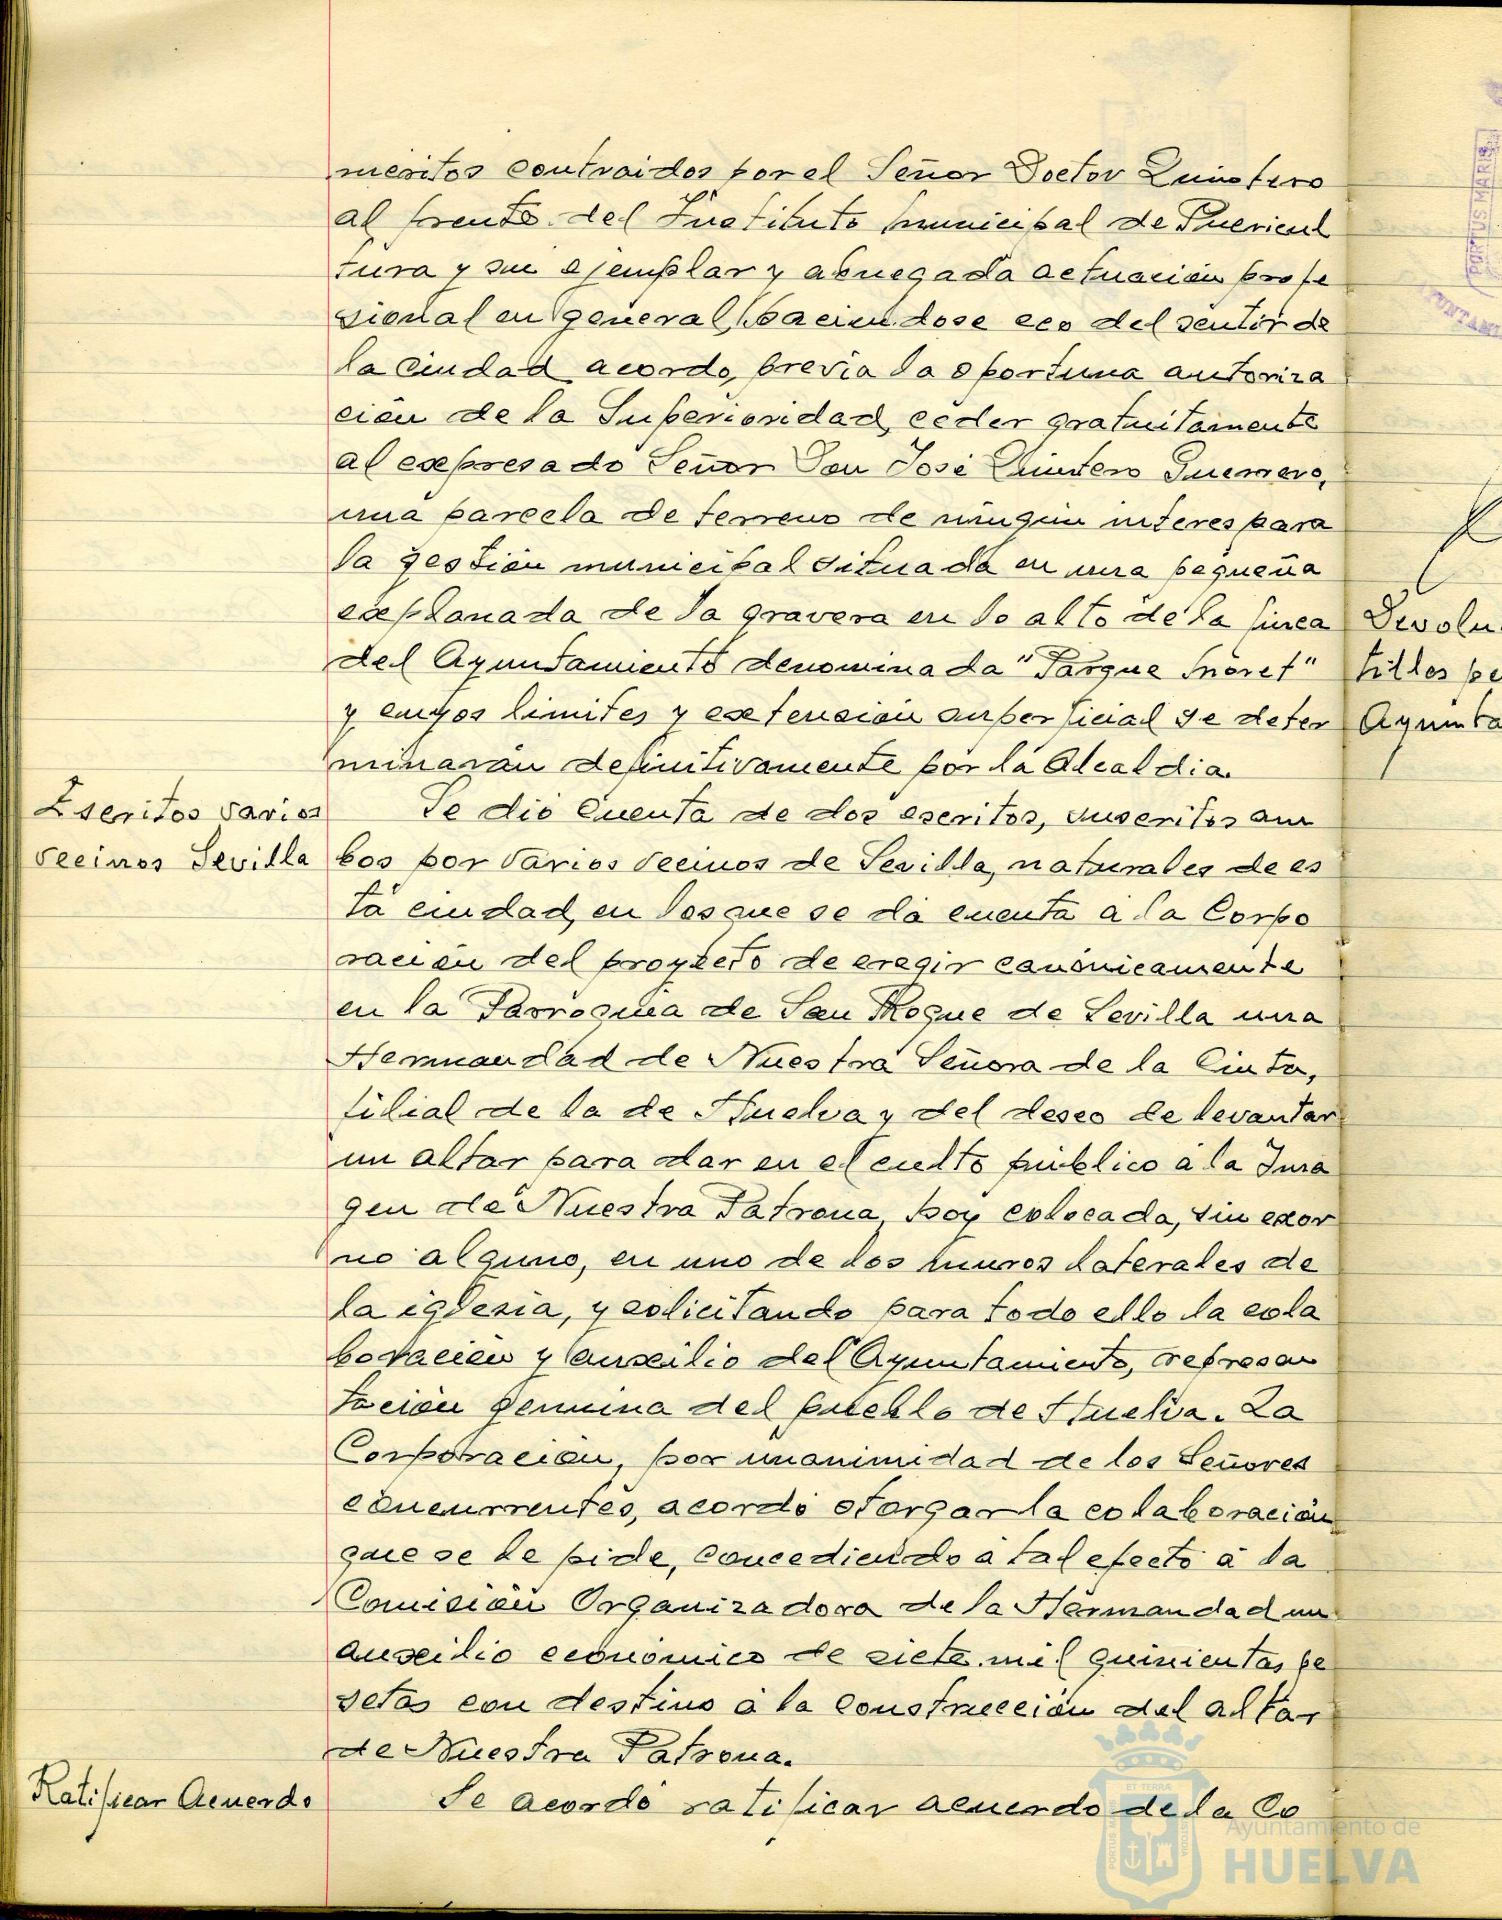 meritos contraidos por el Señor Doctor Quintero
al frente del Instituto Municipal de Puericul
tura y su ejemplar y abnegada actuación profe
sional en general, haciendose eco del sentir de
la Ciudad acordo, previa la oportuna autoriza
ción de la Superioridad, ceder gratuitamente
al expresado Señor Don José Quintero Guerrero,
una parcela de terreno de ningún interes para
la gestión municipal situada en una pequeña
explanada de la gravera en lo alto de la finca
del Ayuntamiento denominada "Parque Moret"
y cuyos limites y extensión superficial se deter
minarán definitivamente por la Alcaldia.
Escritos varios
vecinos Sevilla
Se dió Cuenta de dos escritos, suscritos am
bos por varios vecinos de Sevilla, naturales de es
ta ciudad, en los que se dá cuenta á la Corpo
ración del proyecto de eregir canónicamente
en la Parroquia de San Roque de Sevilla una
Hermandad de Nuestra Señora de la Cinta,
filial de la de Huelva y del deseo de levantar
un altar para dar en el culto público a la Ima
gen de Nuestra Patrona, hoy colocada, sin exor
no alguno, en uno de los muros laterales de
la iglesia, y solicitando para todo ello la cola
boración y auxilio del Ayuntamiento, represen
tación genuina del pueblo de Huelva. La
Corporación, por unanimidad de los Señores
concurrentes, acordó otorgar la colaboración
que se le pide, concediendo á tal efecto á la
Comisión Organizadora de la Hermandad un
auxilio económico de siete mil quinientas pe
setas con destino a la construcción del altar
de Nuestra Patrona.
Ratificar Acuerdo
Se acordó ratificar acuerdo de la Co
Devolu
tillos pe
Ayunta
PORTUS MARIS
ET TERRA
Ayuntamiento de
HUELVA